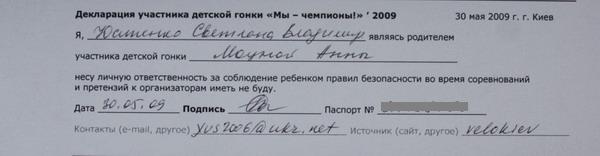 Декларация участника детской гонки «Мы – чемпионы!» ’ 2009 30 мая 2009 г. г. Киев
Я, Светлана Владимир являясь родителем
участника детской гонки Анны
несу личную ответственность за соблюдение ребенком правил безопасности во время соревнований
и претензий к организаторам иметь не буду.
Дата 30.05.09 Подпись Паспорт №
Контакты (e-mail, другое) yus2006@ukr.net Источник (сайт, другое) velokiev